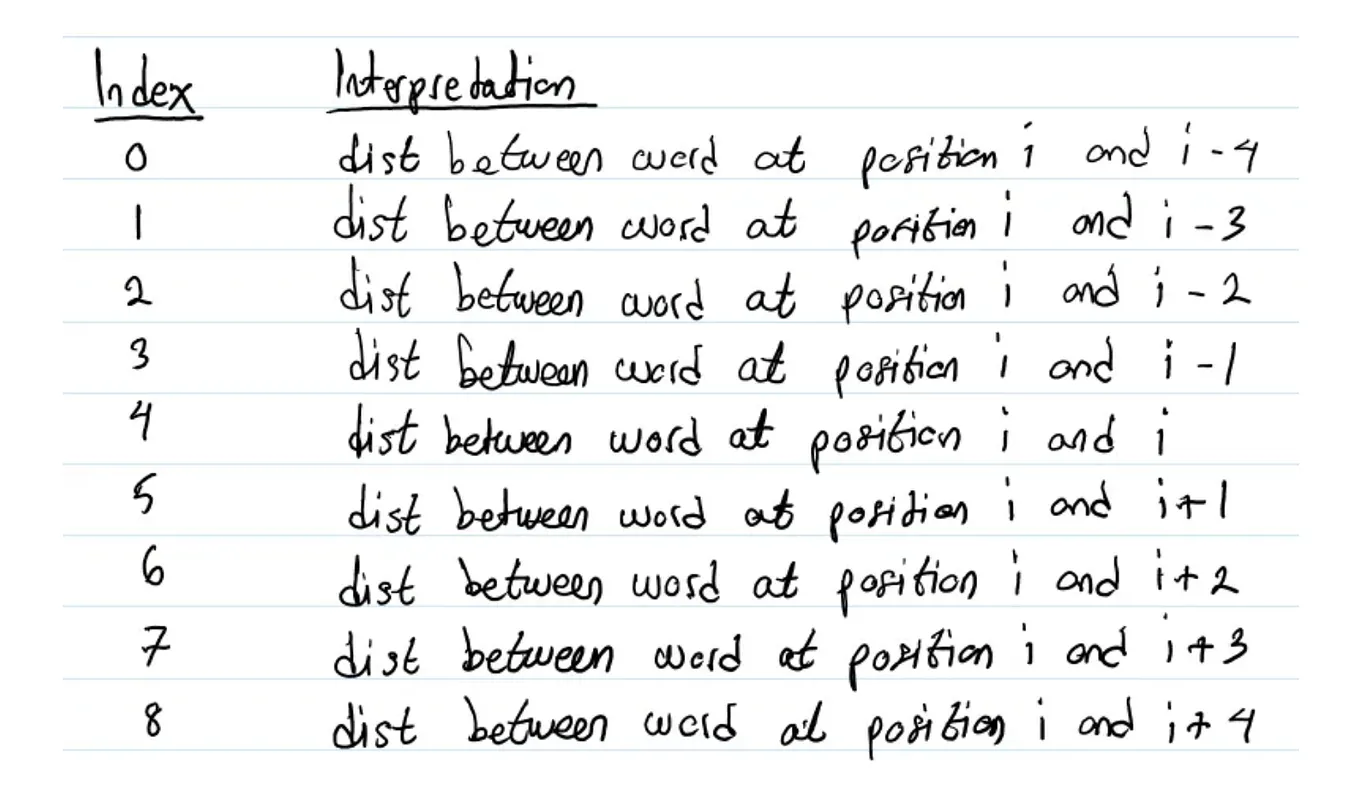 Index Interpretation
0 dist between word at position i and i - 4
1 dist between word at position i and i - 3
2 dist between word at position i and i - 2
3 dist between word at position i and i - 1
4 dist between word at position i and i
5 dist between word at position i and i + 1
6 dist between word at position i and i + 2
7 dist between word at position i and i + 3
8 dist between word at position i and i + 4